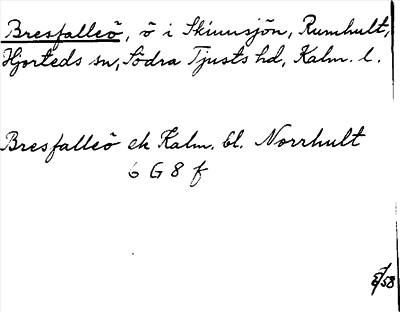 Bresfalleö, ö i Skinnsjön, Rumhult,
Hjorteds sn, Södra Tjusts hd, Kalm. l.
Bresfalleö ek Kalm. bl. Norrhult
6 G 8 f